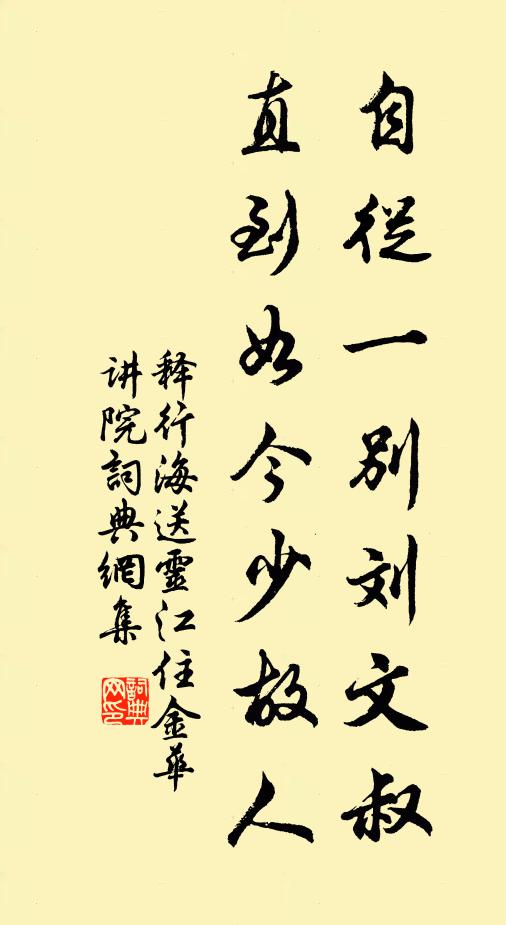 自從一别刘文叔
直到如今少故人
释行海送靈江住金華
讲院詞典網集
詞典
网印